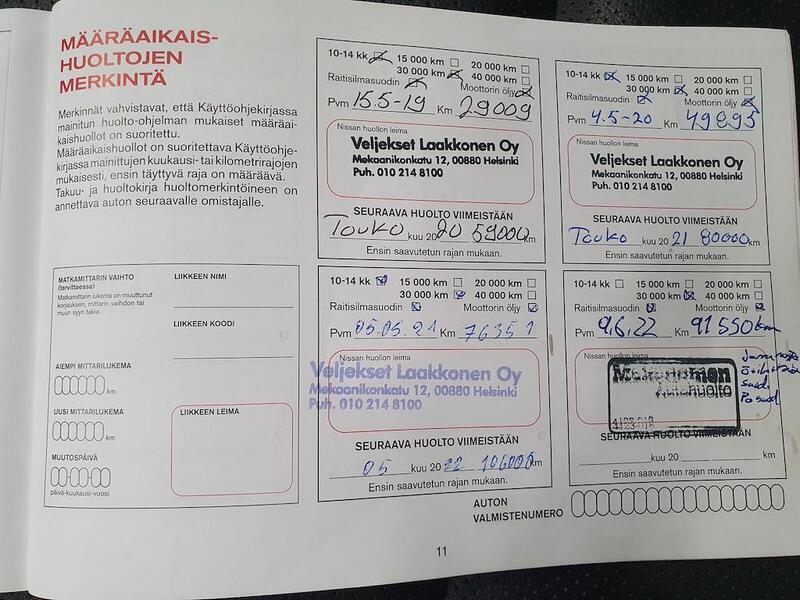 MÄÄRÄAIKAIS-
HUOLTOJEN
MERKINTÄ
Merkinnät vahvistavat, että Käyttöohjekirjassa
mainitun huolto-ohjelman mukaiset määräai-
kaishuollot on suoritettu.
Määräaikaishuollot on suoritettava Käyttöohje-
kirjassa mainittujen kuukausi- tai kilometrirajojen
mukaisesti, ensin täyttyvä raja on määräävä.
Takuu- ja huoltokirja huoltomerkintöineen on
annettava auton seuraavalle omistajalle.
MATKAMITTARIN VAIHTO
(tarvittaessa)
Matkamittarin lukema on muuttunut
korjauksen, mittarin vaihdon tai
muun syyn takia.
AIEMPI MITTARILUKEMA
km
UUSI MITTARILUKEMA
km
MUUTOSPÄIVÄ
päivä-kuukausi-vuosi
LIIKKEEN NIMI
LIIKKEEN KOODI
LIIKKEEN LEIMA
10-14 kk 15 000 km 20 000 km
30 000 km 40 000 km
Raitisilmasuodin Moottorin öljy
Pvm 15.5-19 Km 29009
Nissan huollon leima
Veljekset Laakkonen Oy
Mekaanikonkatu 12, 00880 Helsinki
Puh. 010 214 8100
SEURAAVA HUOLTO VIIMEISTÄÄN
Touko kuu 20 20 59000 km
Ensin saavutetun rajan mukaan.
10-14 kk 15 000 km 20 000 km
30 000 km 40 000 km
Raitisilmasuodin Moottorin öljy
Pvm 4.5-20 Km 49895
Nissan huollon leima
Veljekset Laakkonen Oy
Mekaanikonkatu 12, 00880 Helsinki
Puh. 010 214 8100
SEURAAVA HUOLTO VIIMEISTÄÄN
Touko kuu 20 21 80000 km
Ensin saavutetun rajan mukaan.
10-14 kk 15 000 km 20 000 km
30 000 km 40 000 km
Raitisilmasuodin Moottorin öljy
Pvm 05.05.21 Km 76351
Nissan huollon leima
Veljekset Laakkonen Oy
Mekaanikonkatu 12, 00880 Helsinki
Puh. 010 214 8100
SEURAAVA HUOLTO VIIMEISTÄÄN
05 kuu 20 22 106000 km
Ensin saavutetun rajan mukaan.
10-14 KK 15 000 km 20 000 km
30 000 km 40 000 km
Raitisilmasuodin Moottorin öljy
Pvm 9.6.22 Km 91550 km
Nissan huollon leima
Mekonomen
Autohuolto
SEURAAVA HUOLTO VIIMEISTÄÄN
kuu 20 km
Ensin saavutetun rajan mukaan.
AUTON
VALMISTENUMERO
11